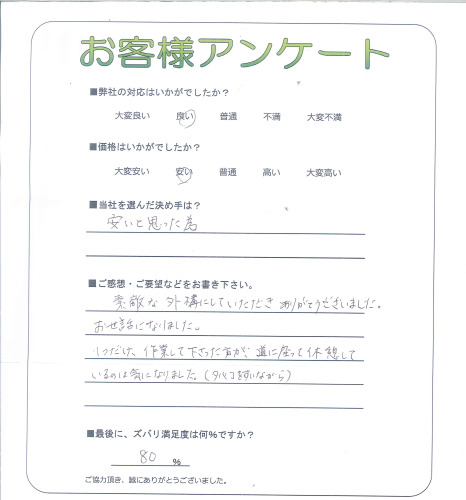 お客様アンケート
■弊社の対応はいかがでしたか？
大変良い 良い 普通 不満 大変不満
■価格はいかがでしたか？
大変安い 安い 普通 高い 大変高い
■当社を選んだ決め手は？
安いと思った為
■ご感想・ご要望などをお書き下さい。
素敵な外構にしていただきありがとうございました。
お世話になりました。
1つだけ、作業して下さった方が、道に座って休憩して
いるのは気になりました。(タバコを吸いながら)
■最後に、ズバリ満足度は何%ですか？
80 %
ご協力頂き、誠にありがとうございました。